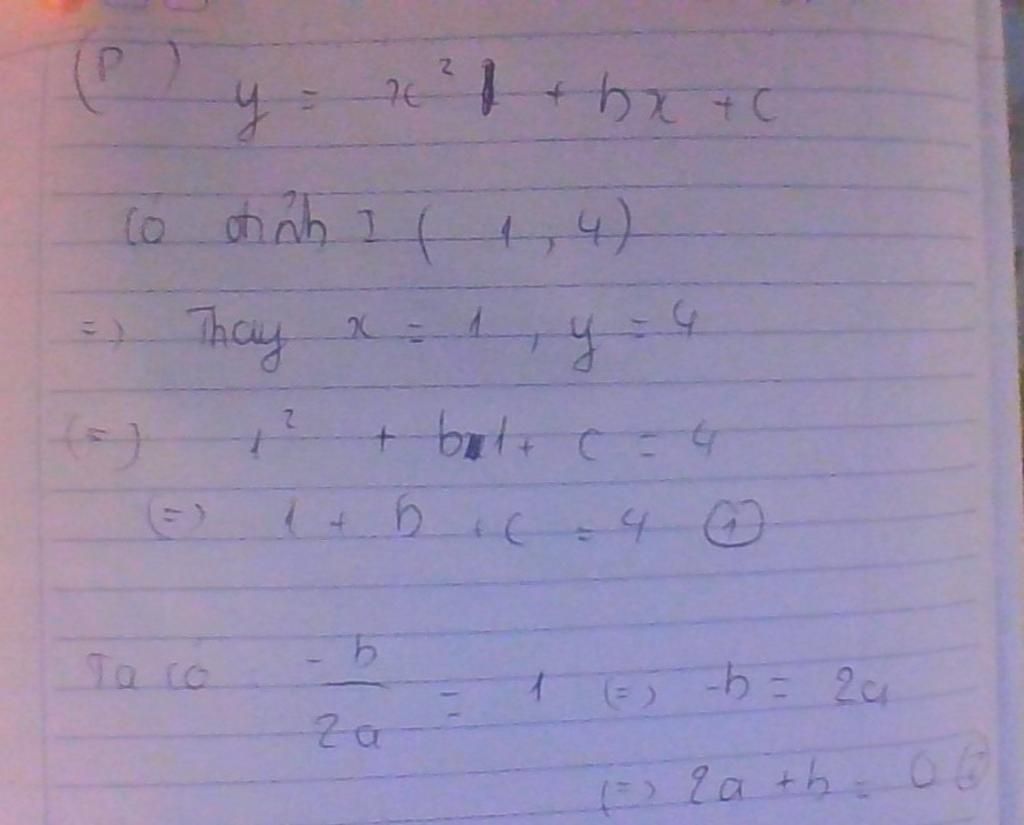 (P) y = x² + bx + c
có đỉnh I ( 1 , 4 )
=> Thay x = 1 , y = 4
(=) 1² + b.1 + c = 4
(=) 1 + b + c = 4 ①
Ta có -b/2a = 1 (=) -b = 2a
(=) 2a + b = 0 ②